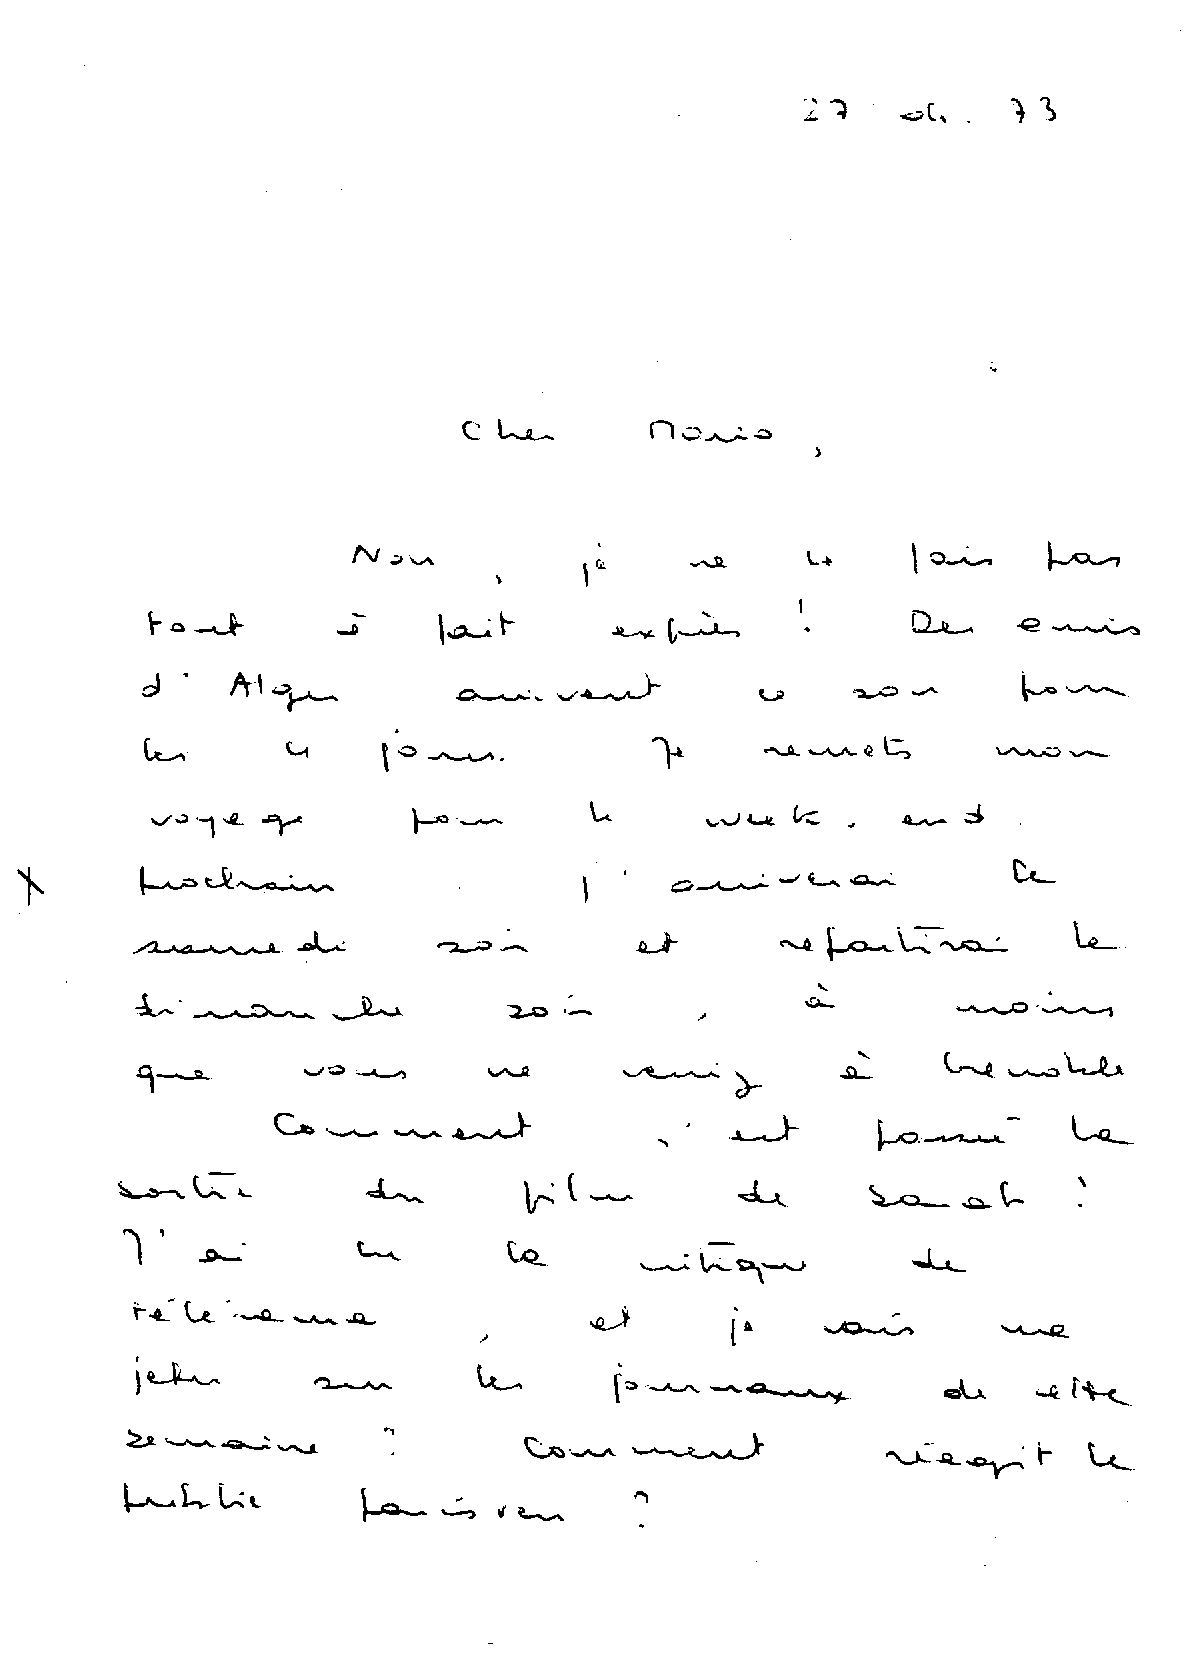 27 oct. 73
Cher Mario,
Non, je ne le fais pas
tout à fait exprès ! Des amis
d'Alger arrivent ce soir pour
les 4 jours. Je remets mon
voyage pour le week-end
prochain. J'arriverai le
samedi soir et repartirai le
dimanche soir, à moins
que vous ne veniez à Grenoble
Comment s'est passée la
sortie du film de ?
J'ai lu la critique de
Télérama, et je vais me
jeter sur les journaux de cette
semaine ? Comment réagit le
public parisien ?